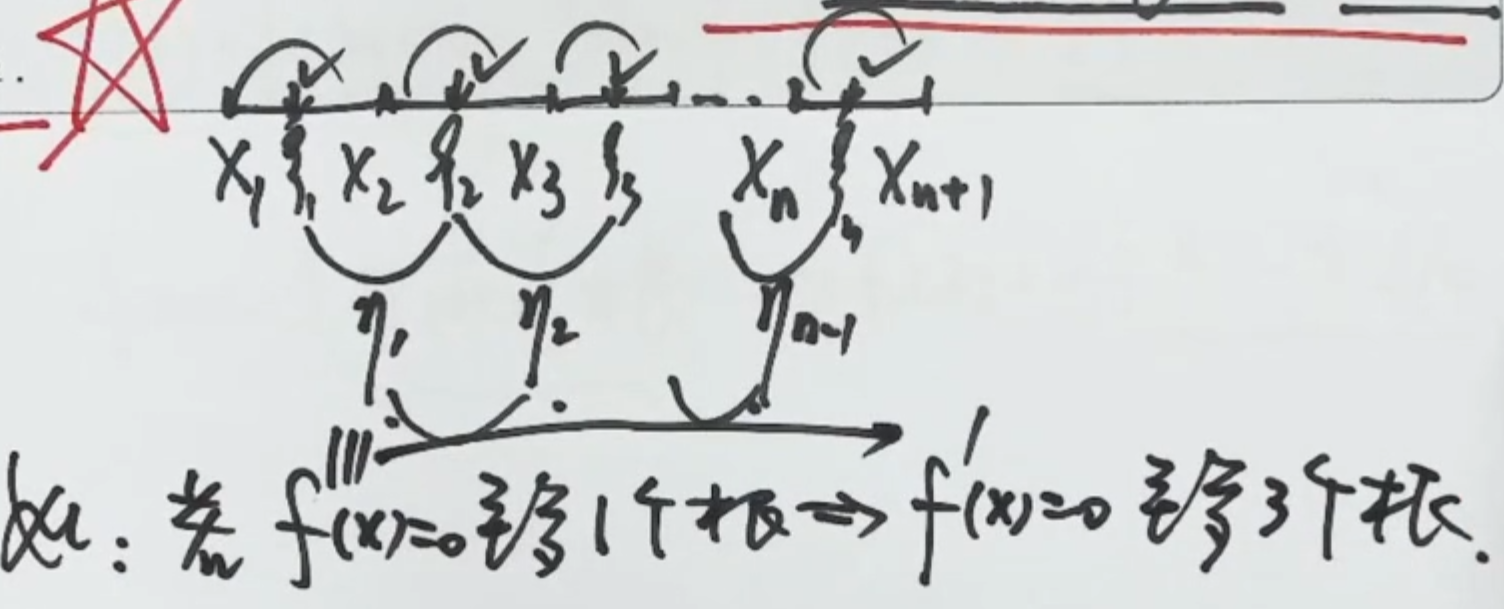 x₁ ξ₁ x₂ ξ₂ x₃ ξ₃ ... xₙ ξₙ xₙ₊₁
η₁ η₂ ηₙ₋₁
如: 若 f'''(x)=0 至多1个根 ⇒ f'(x)=0 至多3个根.